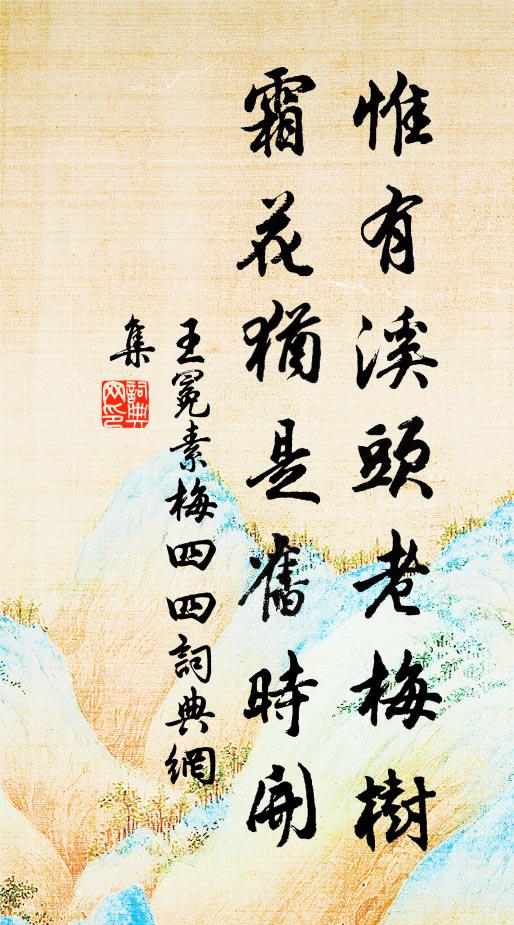 惟有溪頭老梅樹
霜花猶是舊時開
王冕素梅四四詞典網
集
詞典
网印